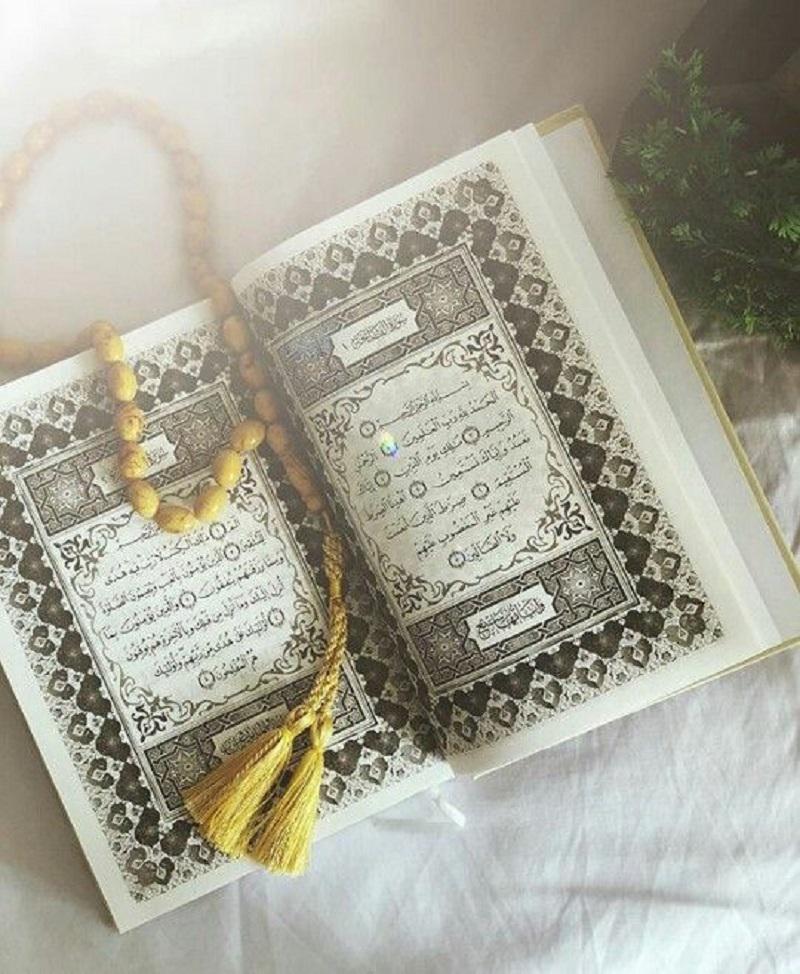 سُورَةُ الْفَاتِحَةِ
بِسْمِ اللَّهِ الرَّحْمَٰنِ الرَّحِيمِ ١
الْحَمْدُ لِلَّهِ رَبِّ الْعَالَمِينَ ٢ الرَّحْمَٰنِ
الرَّحِيمِ ٣ مَالِكِ يَوْمِ الدِّينِ ٤ إِيَّاكَ
نَعْبُدُ وَإِيَّاكَ نَسْتَعِينُ ٥ اهْدِنَا الصِّرَاطَ
الْمُسْتَقِيمَ ٦ صِرَاطَ الَّذِينَ أَنْعَمْتَ
عَلَيْهِمْ غَيْرِ الْمَغْضُوبِ عَلَيْهِمْ
وَلَا الضَّالِّينَ ٧
الم ١ ذَٰلِكَ الْكِتَابُ لَا رَيْبَ فِيهِ هُدًى
لِلْمُتَّقِينَ ٢ الَّذِينَ يُؤْمِنُونَ بِالْغَيْبِ وَيُقِيمُونَ الصَّلَوٰةَ
وَمِمَّا رَزَقْنَاهُمْ يُنْفِقُونَ ٣ وَالَّذِينَ يُؤْمِنُونَ بِمَا
أُنْزِلَ إِلَيْكَ وَمَا أُنْزِلَ مِنْ قَبْلِكَ وَبِالْآخِرَةِ هُمْ يُوقِنُونَ ٤
أُولَٰئِكَ عَلَىٰ هُدًى مِنْ رَبِّهِمْ وَأُولَٰئِكَ
هُمُ الْمُفْلِحُونَ ٥